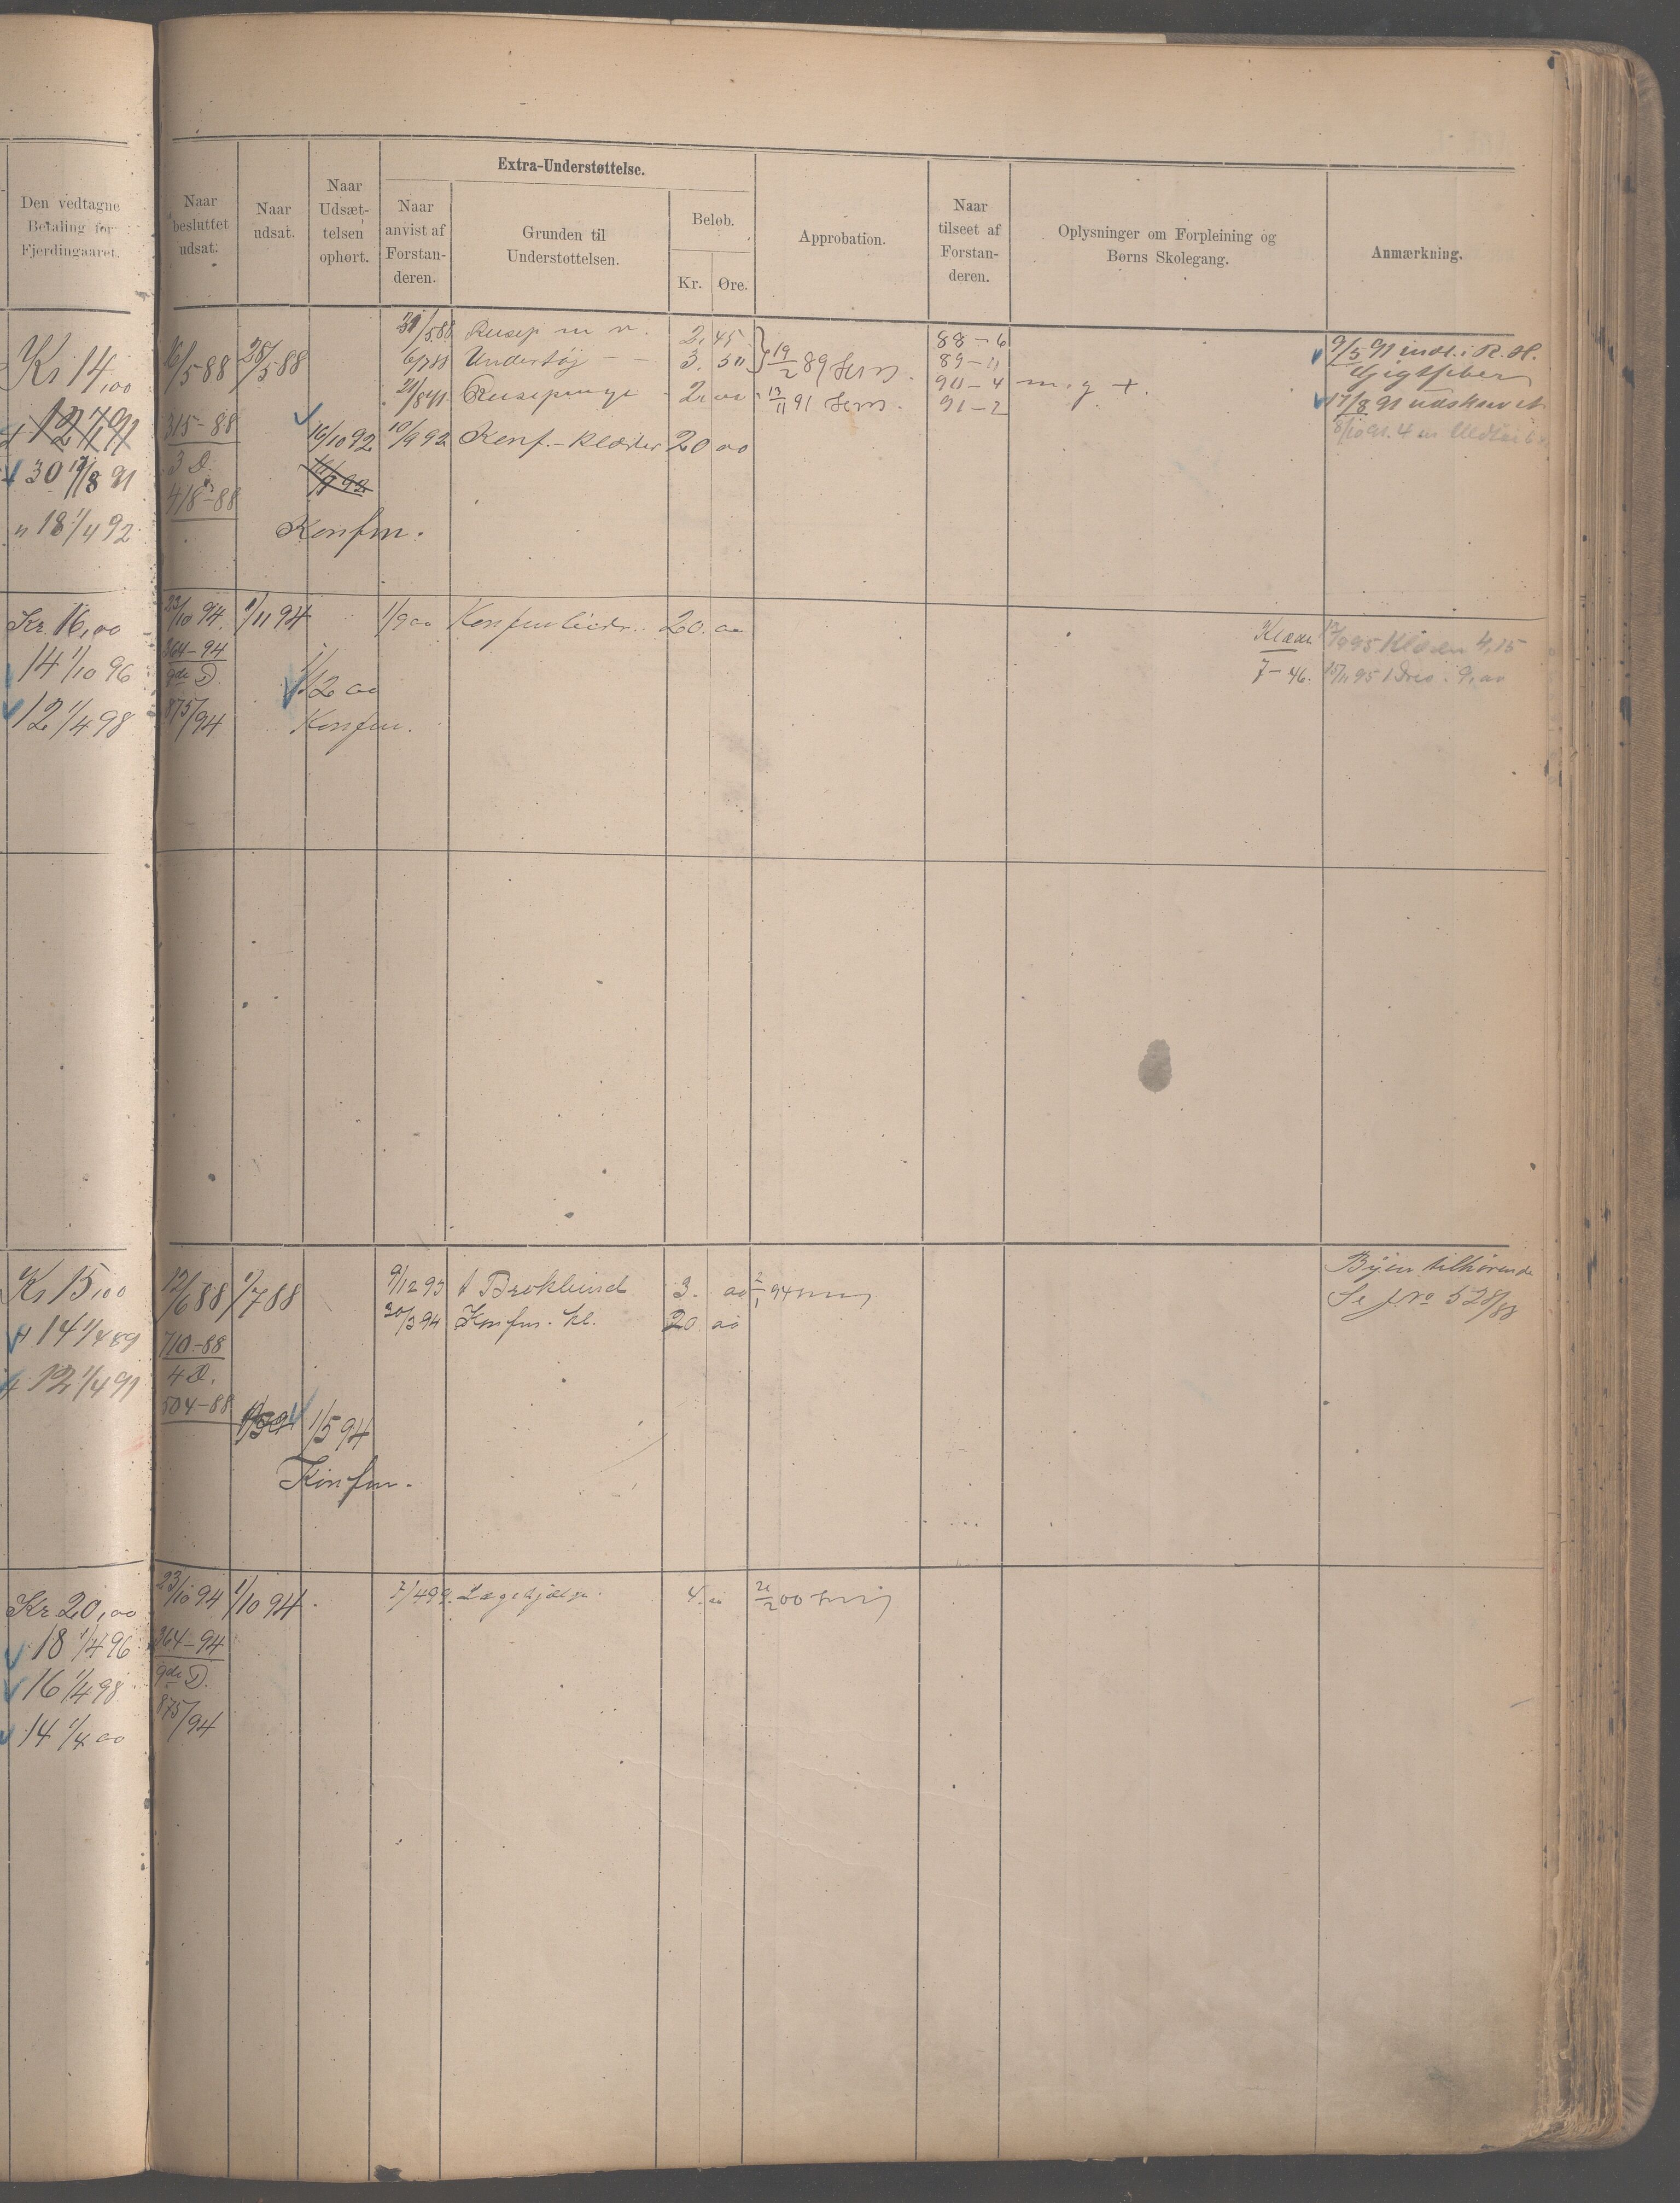 Den vedtagne
Betaling for
Fjerdingaaret.
Naar
besluttet
udsat.
Naar
udsat.
Naar
Udsæt-
telsen
ophørt.
Extra-Understøttelse.
Naar
anvist af
Forstan-
deren.
Grunden til
Understøttelsen.
Beløb.
Kr. Øre.
Approbation.
Naar
tilseet af
Forstan-
deren.
Oplysninger om Forpleining og
Børns Skolegang.
Anmærkning.
Kr 14,00
30 17/8 91
" 18 1/4 92
16/5 88 28/5 88
315-88
3 D.
418-88
16/10 92
Konfm.
31/5 88 m v. 2. 45
6/7 88 Undertøj - - 3. 50
21/8 91 Reisepenge 2. 00
10/9 92 Konf.-Klæder 20 00
19/2 89
13/11 91
88-6
89-11
90-4 m. g +.
91-2
9/5 91 indl. i R. H.
Gigtfeber
17/8 91 udskrevet
Kr. 16,00
14 1/10 96
12 1/4 98
23/10 94 1/11 94
364-94
9de D.
875/94
Konfm.
1/9 00 20. 00
Klæder
7-46.
95 Klæder 4,15
15/11 95 9,00
Kr 15,00
14 1/4 89
12 1/4 91
12/6 88 1/7 88
710-88
4 D.
504-88
1/5 94
Konfm.
9/12 93 1 Brokbind 3. 00 2/1 94
30/3 94 Konfm. Kl. 20 00
Byen tilhørende
Se J. No 528/88
Kr 20,00
18 1/4 96
16 1/4 98
14 1/4 00
23/10 94 1/10 94
364-94
9de D.
875/94
7/4 99. Lægehjælp. 4. 00 2/2 00